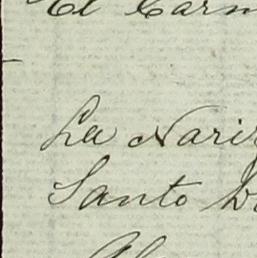 El Carm
La Narir
Santo D